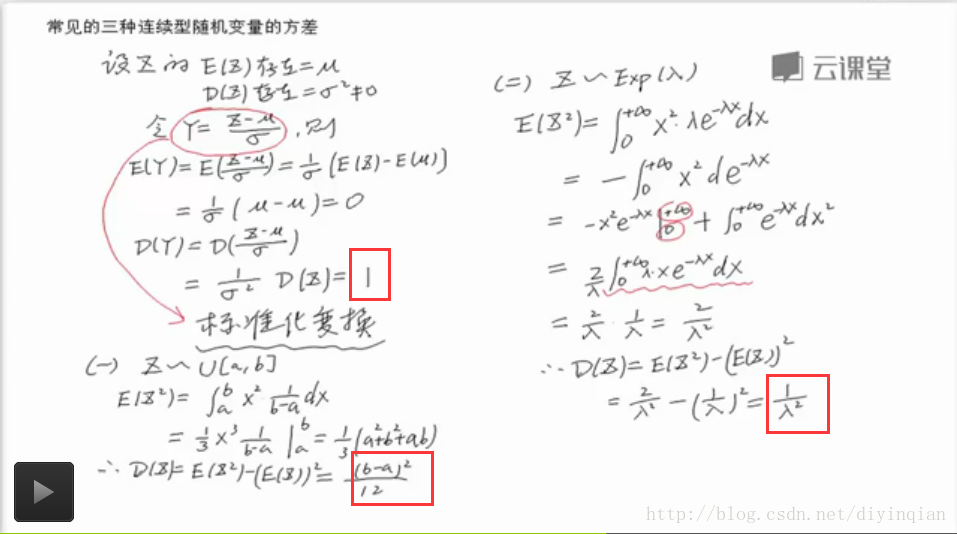 常见的三种连续型随机变量的方差
设X的 E(X)存在=μ
D(X)存在=σ²≠0
令 Y= (X-μ)/σ ,则
E(Y)=E((X-μ)/σ)=1/σ [E(X)-E(μ)]
= 1/σ (μ-μ)=0
D(Y)=D((X-μ)/σ)
= 1/σ² D(X)= 1
标准化变换
(一) X~U[a,b]
E(X²)= ∫_a^b x² 1/(b-a) dx
= 1/3 x³ 1/(b-a) |_a^b = 1/3 (a²+b²+ab)
∴ D(X)=E(X²)-(E(X))²= (b-a)²/12
云课堂
(二) X~Exp(λ)
E(X²)= ∫_0^{+∞} x²·λe^{-λx}dx
= -∫_0^{+∞} x² de^{-λx}
= -x²e^{-λx} |_0^{+∞} + ∫_0^{+∞} e^{-λx}dx²
= 2/λ ∫_0^{+∞} λ·xe^{-λx}dx
= 2/λ · 1/λ = 2/λ²
∴ D(X)=E(X²)-(E(X))²
= 2/λ² -(1/λ)²= 1/λ²
http://blog.csdn.net/diyinqian